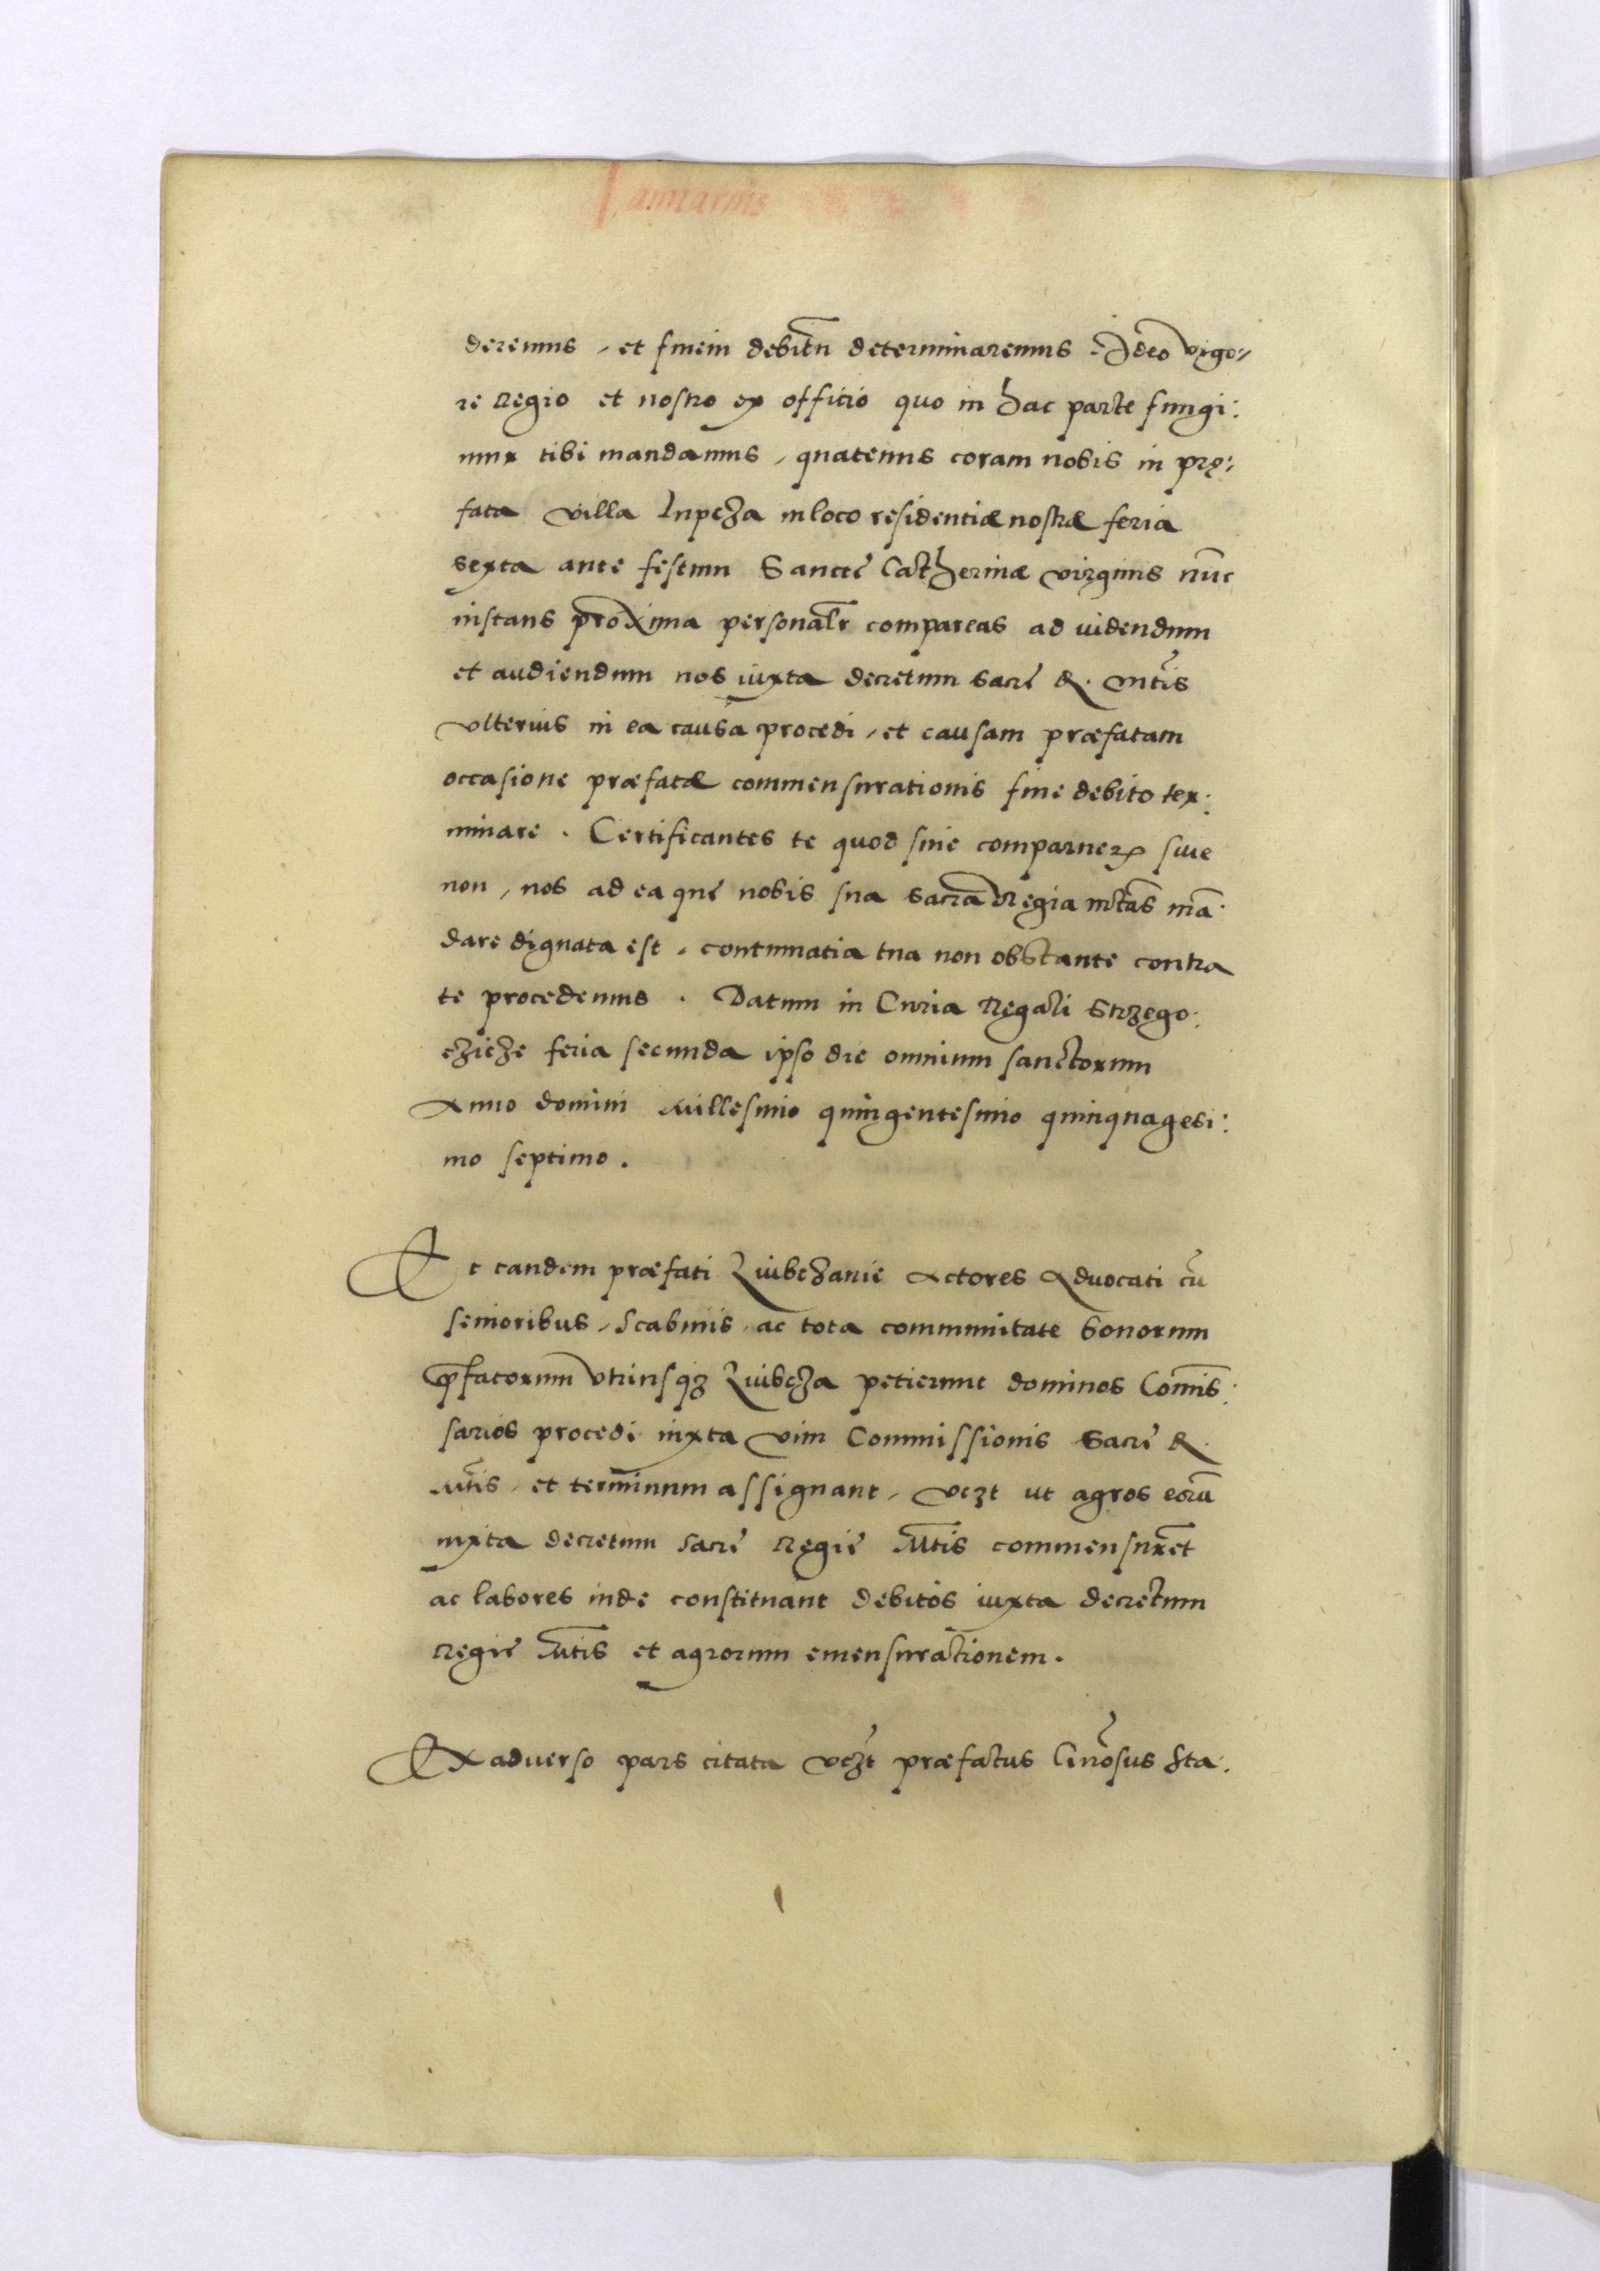 deremus, et finem debitū determinaremus. Ideo vigo-
re regio et nostro ex officio quo in hac parte fungi:
mur tibi mandamus, quatenus coram nobis in prę:
fata villa Lupcza in loco residentiæ nostræ feria
sexta ante festum Sanctę Catherinæ virginis nūc
instans proxima personalr compareas ad videndum
et audiendum nos iuxta decretum Sacrę R. Mtis
vlterius in ea causa procedi, et causam præfatam
occasione præfatæ commensurationis fine debito ter:
minare. Certificantes te quod siue comparuer siue
non, nos ad ea quę nobis sua sacra Regia Mtas mā:
dare dignata est, contumatia tua non obstante contra
te procedemus. Datum in Curia Regali Strzego:
czicze feria secunda ipso die omnium sanctorum
Anno domini Millesimo quingentesimo quinquagesi:
mo septimo.
Et tandem præfati Liubczanię Actores Advocati cū
senioribus, Scabinis, ac tota communitate bonorum
pfatorum vtriusqz Liubcza petierunt dominos Comis:
sarios procedi iuxta vim Commissionis Sacrę R.
Mtis, et terminum assignant, vczt ut agros eorū
iuxta decretum sacrę Regię Mtis commensuret
ac labores inde constituant debitos iuxta decretum
Regię Mtis et agrorum emensurationem.
Ex adverso pars citata vczt præfatus Gnosus Sta: